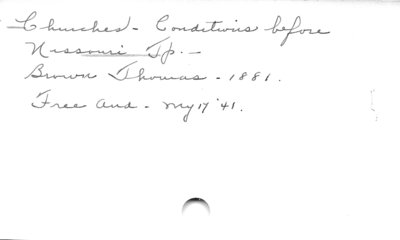 Churches - Conditions before
Nissouri Tp. -
Brown Thomas - 1881.
Free and - My 17 '41.